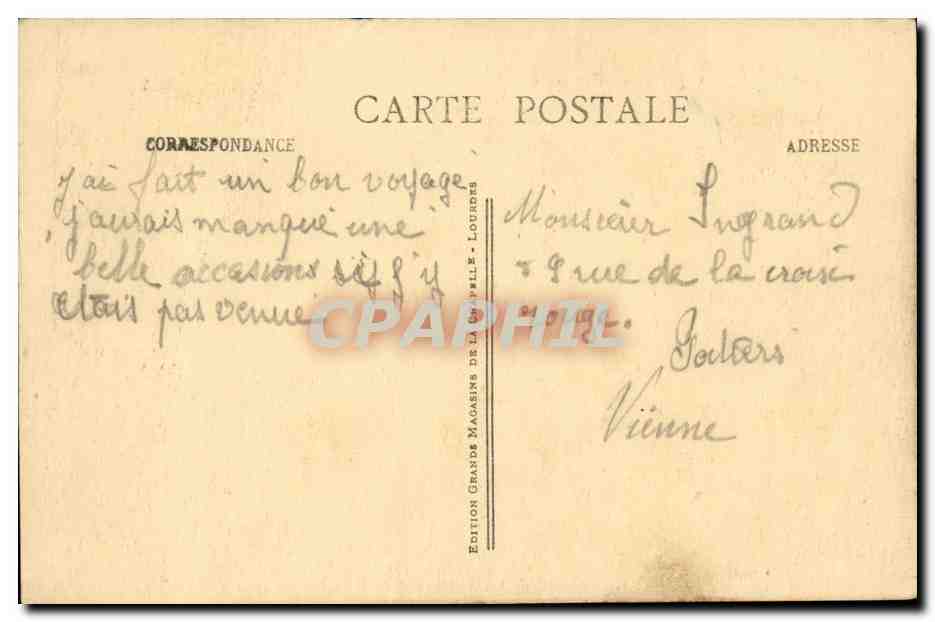 CARTE POSTALE
CORRESPONDANCE
j'ai fait un bon voyage
j'aurais manqué une
belle occasions si j'y
etais pas venue
EDITION GRANDS MAGASINS DE LA CHAPELLE - LOURDES
ADRESSE
Monsieur Ingrand
9 rue de la croix
rouge.
Poitiers
Vienne
CPAPHIL